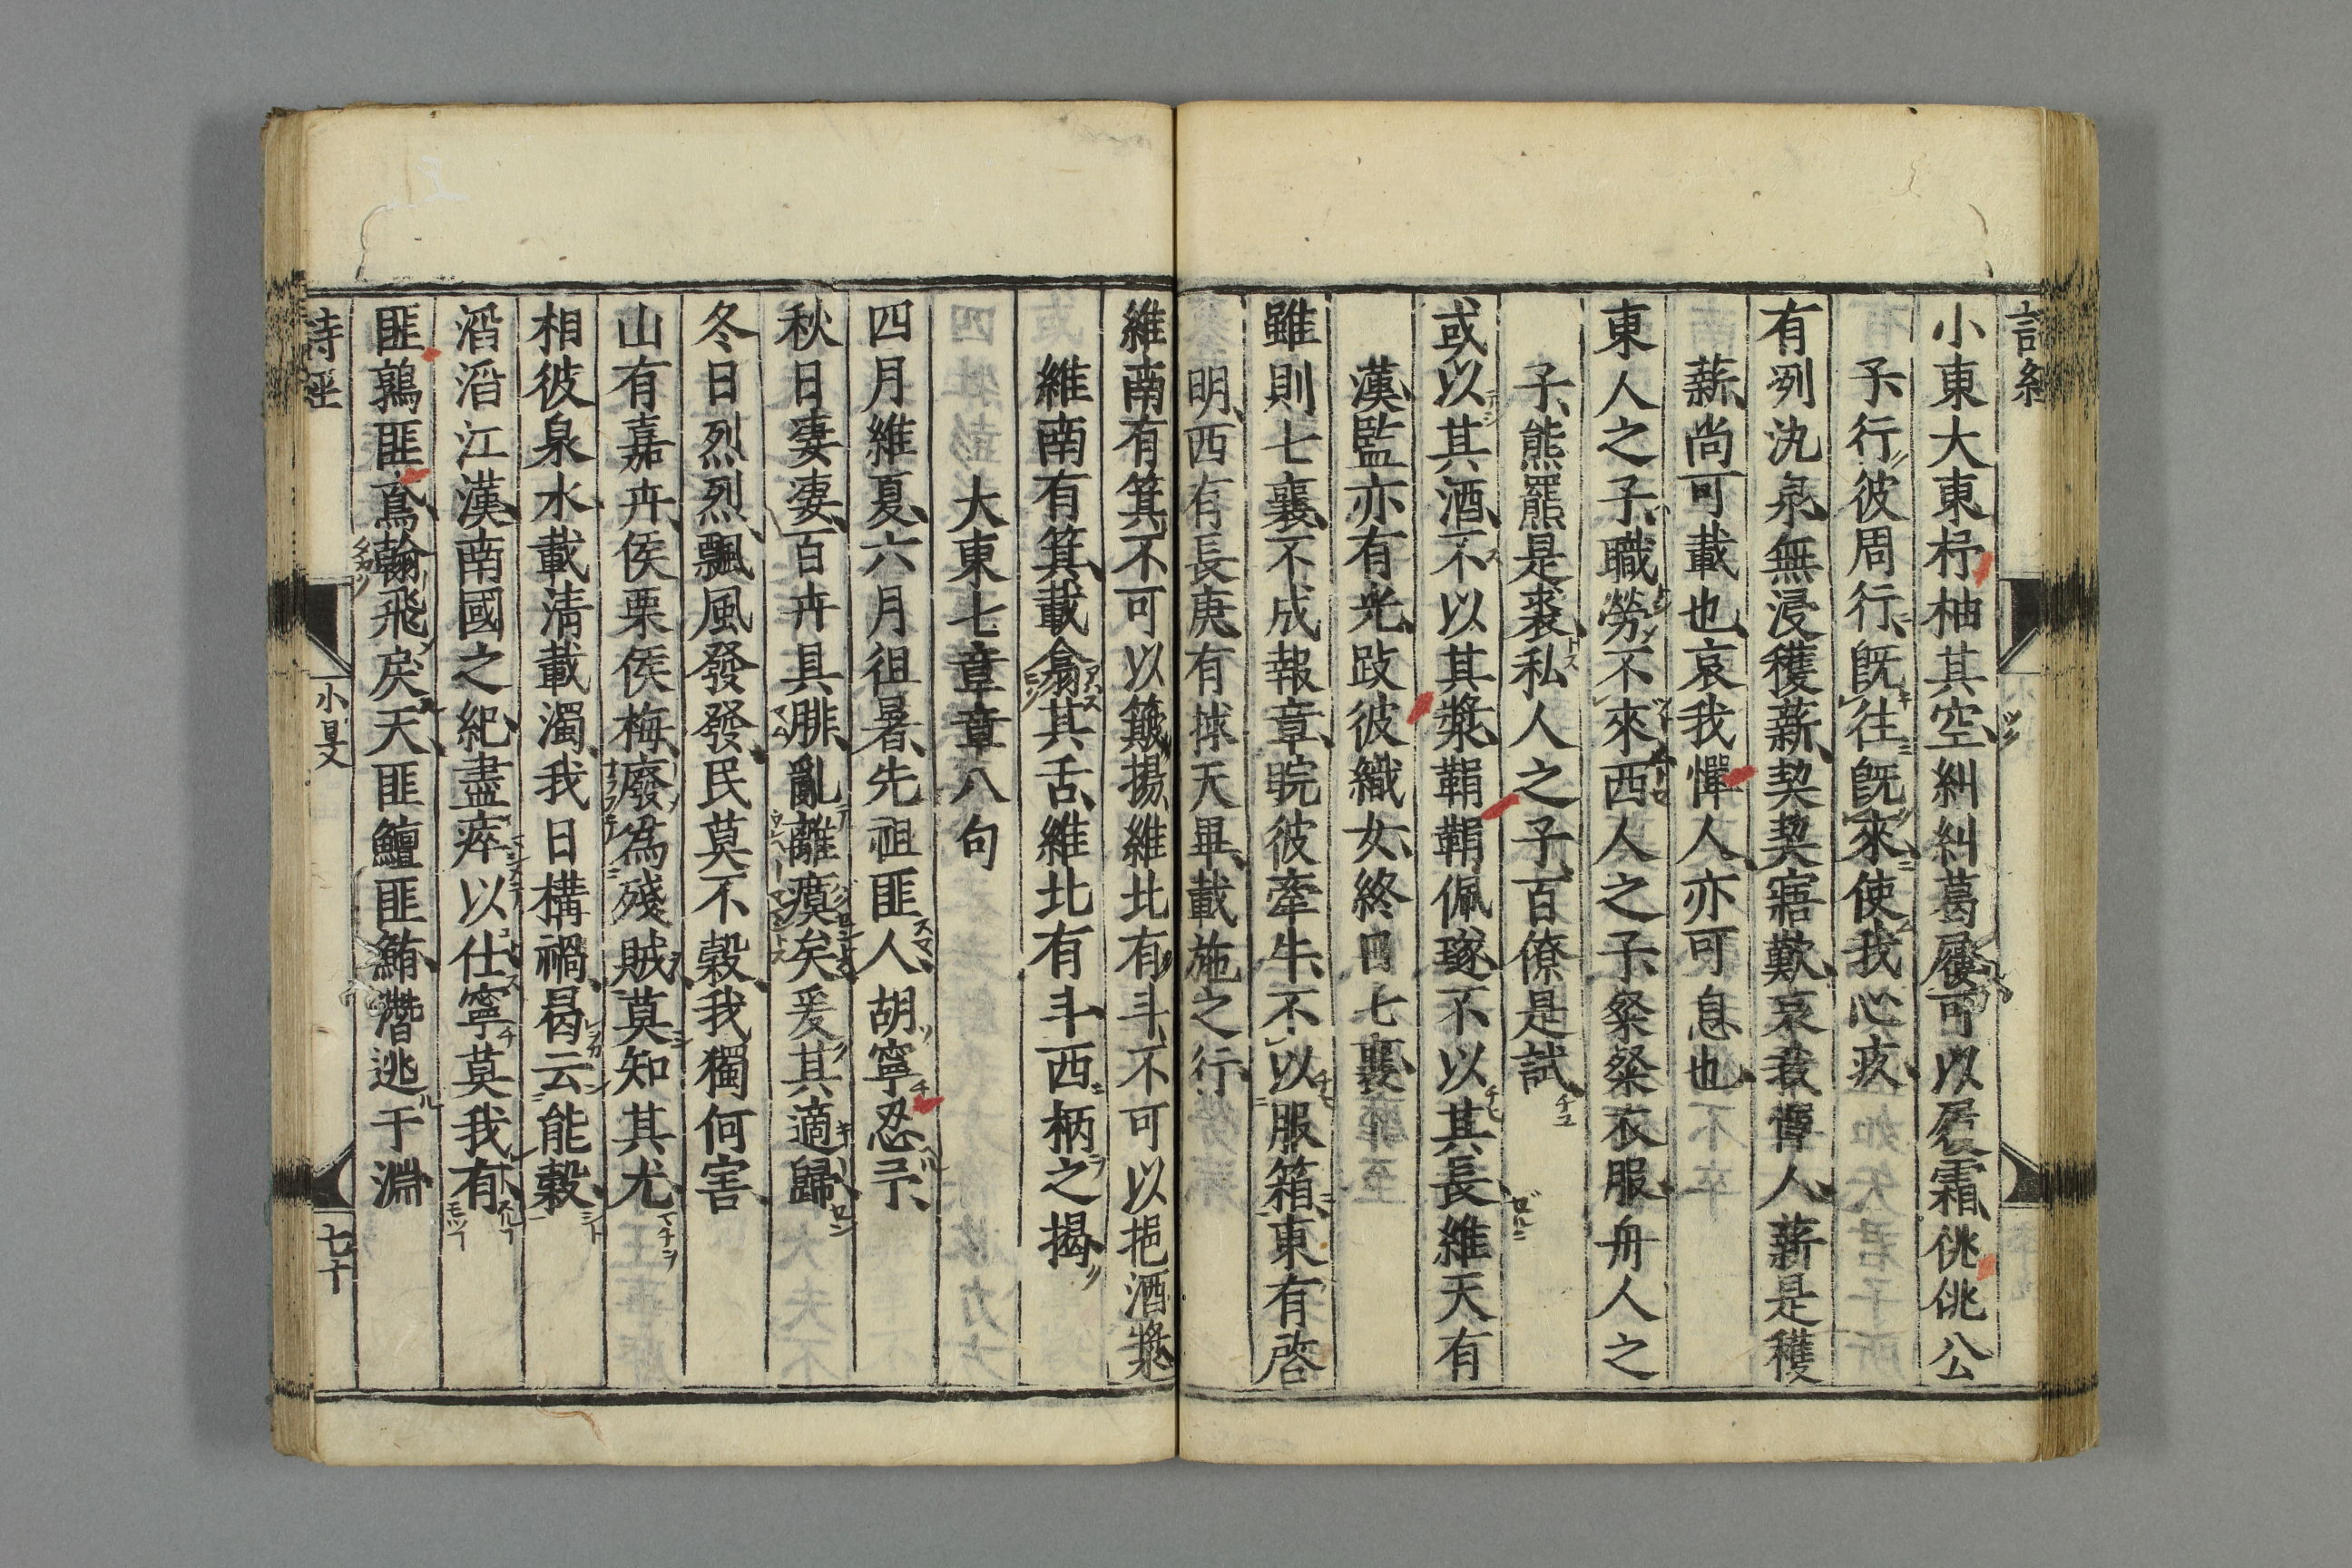 小東大東杼柚其空糾糾葛屨可以屨霜佻佻公
子行彼周行既往既來使我心疚
有冽氿泉無浸穫薪契契寤歎哀我憚人薪是穫
薪尚可載也哀我憚人亦可息也
東人之子職勞不來西人之子粲粲衣服舟人之
子熊羆是裘私人之子百僚是試
或以其酒不以其漿鞙鞙佩璲不以其長維天有
漢監亦有光跂彼織女終日七襄
雖則七襄不成報章睆彼牽牛不以服箱東有啓
明西有長庚有捄天畢載施之行
維南有箕不可以簸揚維北有斗不可以挹酒漿
維南有箕載翕其舌維北有斗西柄之揭
大東七章章八句
四月維夏六月徂暑先祖匪人胡寧忍予
秋日淒淒百卉具腓亂離瘼矣爰其適歸
冬日烈烈飄風發發民莫不穀我獨何害
山有嘉卉侯栗侯梅廢為殘賊莫知其尤
相彼泉水載清載濁我日構禍曷云能穀
滔滔江漢南國之紀盡瘁以仕寧莫我有
匪鶉匪鳶翰飛戾天匪鱣匪鮪潛逃于淵
詩經
小旻
七十